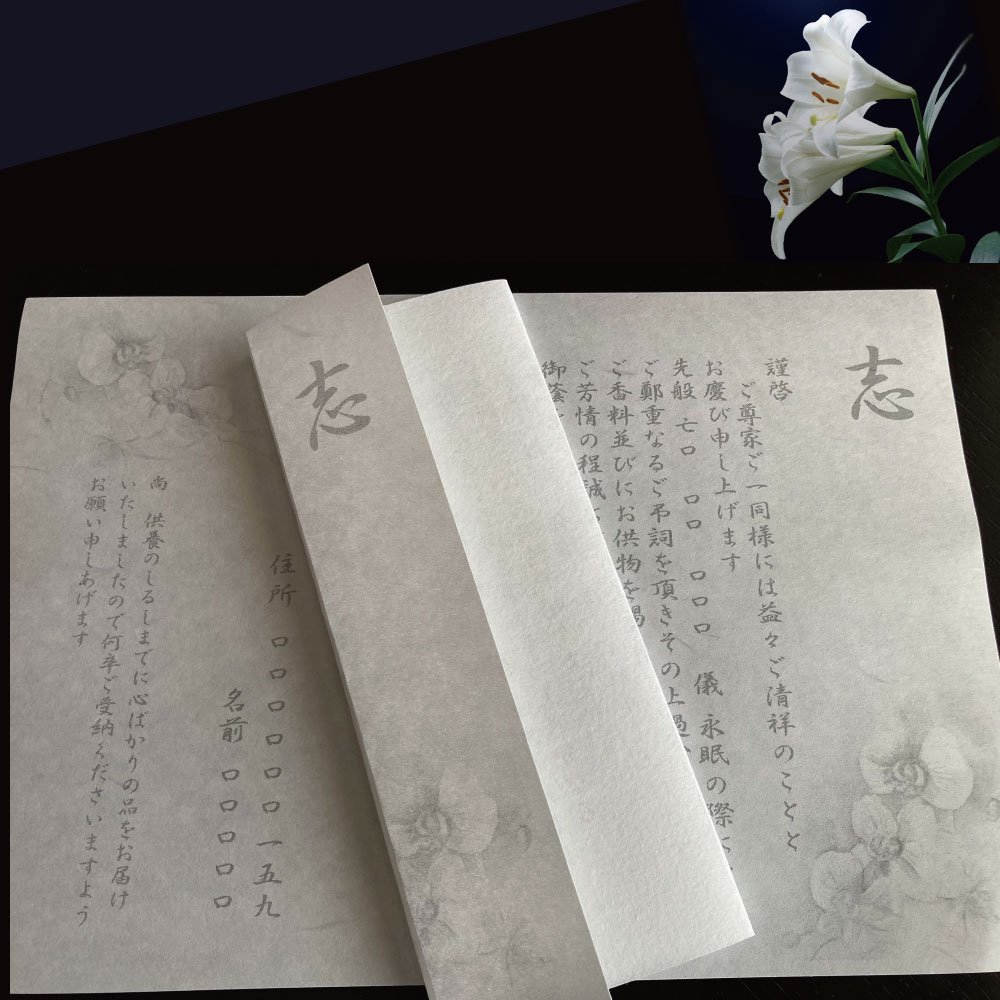 志
謹啓
ご尊家ご一同様には益々ご清祥のことと
お慶び申し上げます
先般 亡口 口口 口口口 儀 永眠の際に
ご鄭重なるご弔詞を頂きその上過
ご香料並びにお供物を賜
ご芳情の程誠に
御蔭
志
住所 口口口口口口一五九
名前 口口口口口
尚 供養のしるしまでに心ばかりの品をお届け
いたしましたので何卒ご受納くださいますよう
お願い申しあげます